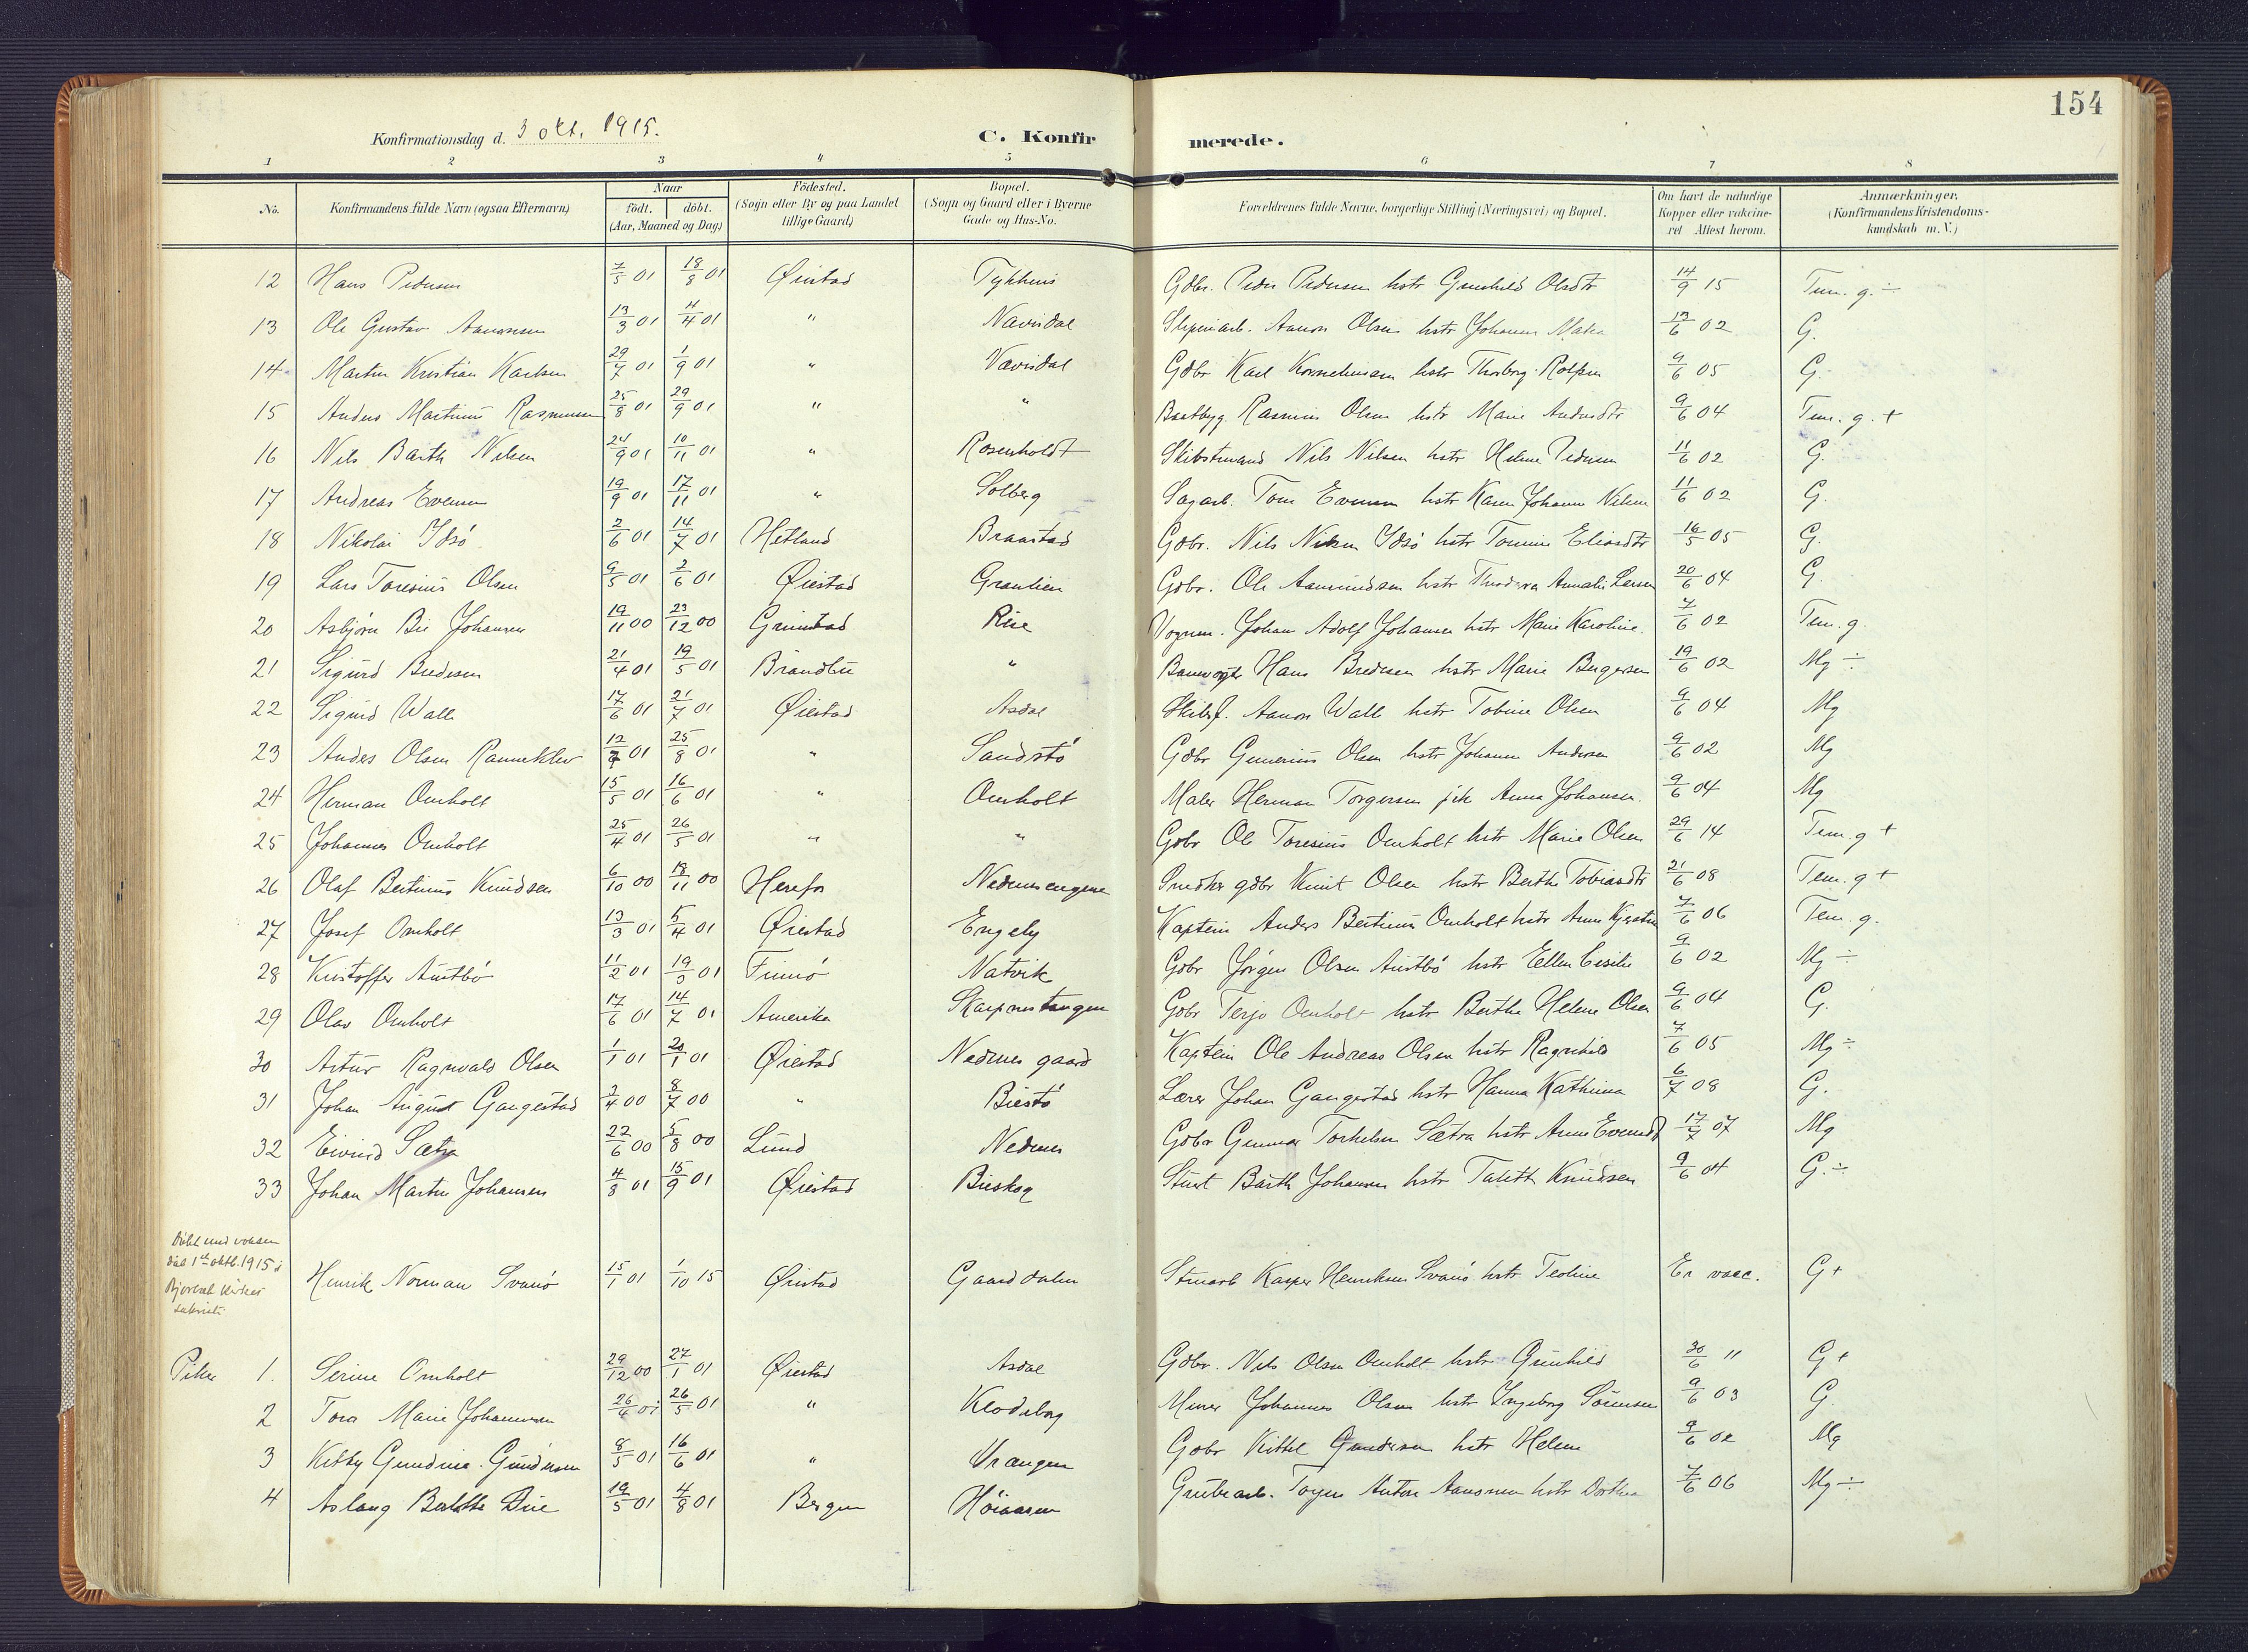 154
Konfirmationsdag d. 3 okt. 1915. C. Konfirmerede.
1 2 3 4 5 6 7 8
No. Konfirmandens fulde Navn (ogsaa Efternavn) Naar födt. döbt. (Aar, Maaned og Dag) Födested. (Sogn eller By og paa Landet tillige Gaard) Bopæl. (Sogn og Gaard eller i Byerne Gade og Hus-No. Forældrenes fulde Navne, borgerlige Stilling (Næringsvei) og Bopæl. Om havt de naturlige Kopper eller vakcineret Attest herom. Anmærkninger. (Konfirmandens Kristendomskundskab m.V.)
12 Hans Pedersen 7/5 01 18/8 01 Øiestad Gdbr. Peder Pedersen hstr Gunhild Olsdtr 14/9 15 Tem. g. ÷
13 Ole Gustav Aanonsen 13/3 01 4/4 01 " Navisdal Sliperiarb. Aanon Olsen hstr Johanne 6 02 G.
14 Martin Kristian Karlsen 29/7 01 1/9 01 " Navisdal Gdbr Karl Korneliussen hstr Thorborg 9/6 05 G.
15 Anders Martinius Rasmussen 25/8 01 29/9 01 " " Baatbyg. Rasmus Olsen hstr Marie Andersdtr 9/6 04 Tem. g. +
16 Nils Barth Nilsen 24/9 01 10/11 01 " Rosenholdt Skibstmand Nils Nilsen hstr Helene Pedersen 11/6 02 G.
17 Andreas Evensen 19/9 01 17/11 01 " Solberg Sagarb. Tom Evensen hstr Karen Johanne Nilsen 11/6 02 G.
18 Nikolai Idsö 2/6 01 14/7 01 Hetland Braastad Gdbr. Nils Nilsen Idsö hstr Tomine Eliasdtr 16/5 05 G.
19 Lars Toresius Olsen 9/5 01 2/6 01 Øiestad Granlien Gdbr. Ole Aanundsen hstr Annalie Larsen 20/6 04 G.
20 Asbjörn Bie Johansen 19/11 00 23/12 00 Grimstad Rise Vognm. Johan Adolf Johansen hstr Marie Karoline 7/6 02 Tem. g.
21 Sigurd Bredesen 21/4 01 19/5 01 Brandbu " Banevogter Hans Bredesen hstr Marie Bergersen 19/6 02 Mg ÷
22 Sigurd Wall 17/6 01 21/7 01 Øiestad Asdal Skibsf. Aanon Wall hstr Tobine Olsen 9/6 04 Mg
23 Anders Olsen Ranneklev 12 01 25/8 01 " Sandstö Gdbr Gunerius Olsen hstr Johanne Andersen 9/6 02 Mg
24 Herman Omholt 15/5 01 16/6 01 " Omholt Maler Herman Torgersen pike Anna Johansen. 9/6 04 Mg
25 Johannes Omholt 25/4 01 26/5 01 " " Gdbr Ole Toresius Omholt hstr Marie Olsen 29/6 14 Tem. g +
26 Olaf Bertinius Knudsen 6/10 00 18/11 00 Herefos Nedenesengene Snedker gdbr Knut Olsen hstr Berthe Tobiasdtr 21/6 08 Tem. g +
27 Josef Omholt 13/3 01 5/4 01 Øiestad Engely Kaptein Anders Bertinius Omholt hstr Anne Kjerstine 7/6 06 Tem. g.
28 Kristoffer Austbö 11/2 01 19/3 01 Finnö Natvik Gdbr Jörgen Olsen Austbö hstr Ellen Cisilie 9/6 02 Mg ÷
29 Olav Omholt 17/6 01 14/7 01 Amerika Skarpnestangen Gdbr Terje Omholt hstr Berthe Helene Olsen 9/6 04 G.
30 Artur Ragnvald Olsen 1/1 01 20/1 01 Øiestad Nedenes gaard Kaptein Ole Andreas Olsen hstr Ragnhild 7/6 05 Mg ÷
31 Johan August Gangestad 2/4 00 8/7 00 " Biestö Lærer Johan Gangestad hstr Hanna Kathrina 6/7 08 G.
32 Eivind Sætra 22/6 00 5/8 00 Lund Nedenes Gdbr Gunnar Torkelsen Sætra hstr Anne Evensdt 17/7 07 Mg
33 Johan Martin Johansen 4/8 01 15/9 01 Øiestad Bieskog Stuert Barth Johansen hstr Talette Knudsen 9/6 04 G. ÷
Döbt
1ste oktb. 1915 i
kirkes
Henrik Norman Svanö 15/1 01 1/10 15 Øiestad Gaarddalen Stenarb Kasper Henriksen Svanö hstr Teoline Er vacc. G +
Piker 1. Serine Omholt 29/12 00 27/1 01 Øiestad Asdal Gdbr. Nils Olsen Omholt hstr Gunhild 30/6 11 G +
2 Tora Marie Johannesen 26/4 01 26/5 01 " Klodeborg Murer Johannes Olsen hstr Ingeborg Sörensen 9/6 03 G.
3 Kitty Gundine Gundersen 8/5 01 16/6 01 " Vrangen Gdbr Kittel Gundersen hstr Helene 9/6 02 Mg
4 Aslaug Due 19/5 01 4/8 01 Bergen Höiaasen Grubearb. Anton Aanonsen hstr Dorthea 7/6 06 Mg ÷